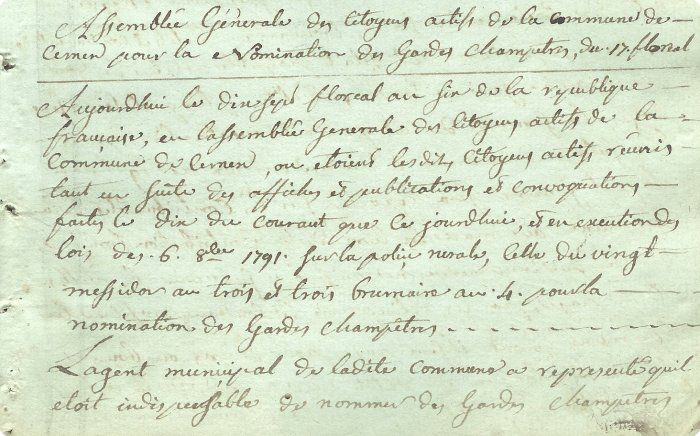 Assemblée Générale des Citoyens actifs de la Commune de
Cernen pour la Nomination des Gardes Champetres, du 17. floreal
Aujourdhui le dix sept floreal an six de la republique
francaise, en l'assemblée Generale des Citoyens actifs de la
Commune de Cernen, ou etoient lesdits Citoyens actifs réunis
tant en suite des affiches et publications et convoquations
faites le dix du courant que ce jourdhuie, et en execution des
lois des .6. 8bre 1791. sur la police rurale, Celle du vingt
messidor an trois et trois brumaire an .4. pour la
nomination des Gardes Champêtres
Lagent municipal de ladite Commune a representé quil
etoit indispensable de nommer des Gardes Champetres